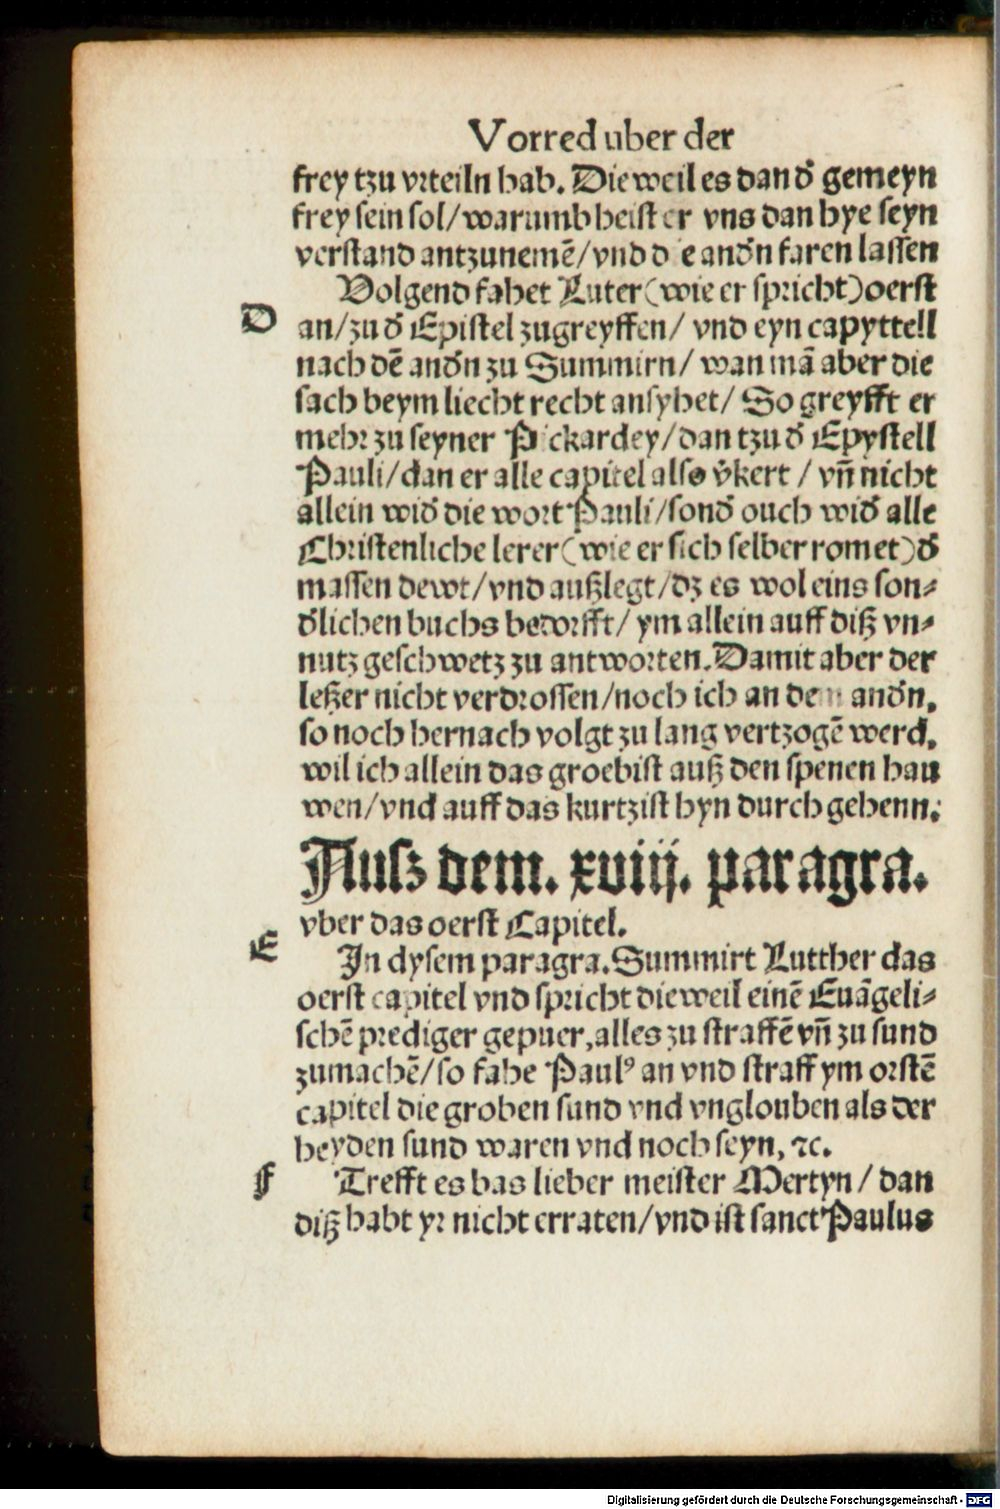 Vorred uber der
frey tzu vrteiln hab. Die weil es dan d̕ gemeyn
frey sein sol/warumb heist er vns dan hye seyn
verstand antzunemē/vnd die and̕n faren lassen
Volgend fahet Luter(wie er spricht)oerst
D
an/zu d̕ Epistel zugreyffen/ vnd eyn capyttell
nach dē and̕n zu Summirn/ wan mā aber die
sach beym liecht recht ansyhet/ So greyfft er
mehr zu seyner Pickardey/dan tzu d̕ Epystell
Pauli/dan er alle capitel also v̕kert / vn̄ nicht
allein wid̕ die wort Pauli/sond̕ ouch wid̕ alle
Christenliche lerer(wie er sich selber romet)d̕
massen dewt/vnd außlegt/dz es wol eins son⸗
d̕lichen buchs bedorfft/ ym allein auff diß vn⸗
nutz geschwetz zu antworten.Damit aber der
leßer nicht verdrossen/noch ich an dem and̕n.
so noch hernach volgt zu lang vertzogē werd.
wil ich allein das groebist auß den spenen hau
wen/vnd auff das kurtzist hyn durch gehenn:
Ausz dem. xviij. paragra.
vber das oerst Capitel.
E
In dysem paragra.Summirt Lutther das
oerst capitel vnd spricht dieweil einē Euāgeli⸗
schē prediger gepuer,alles zu straffē vn̄ zu sund
zumachē/so fahe Paulꝰ an vnd straff ym orstē
capitel die groben sund vnd vnglouben als der
heyden sund waren vnd noch seyn, ⁊c.
F
Trefft es bas lieber meister Mertyn / dan
diß habt yr nicht erraten/vnd ist sanct Paulus
Digitalisierung gefördert durch die Deutsche Forschungsgemeinschaft - DFG